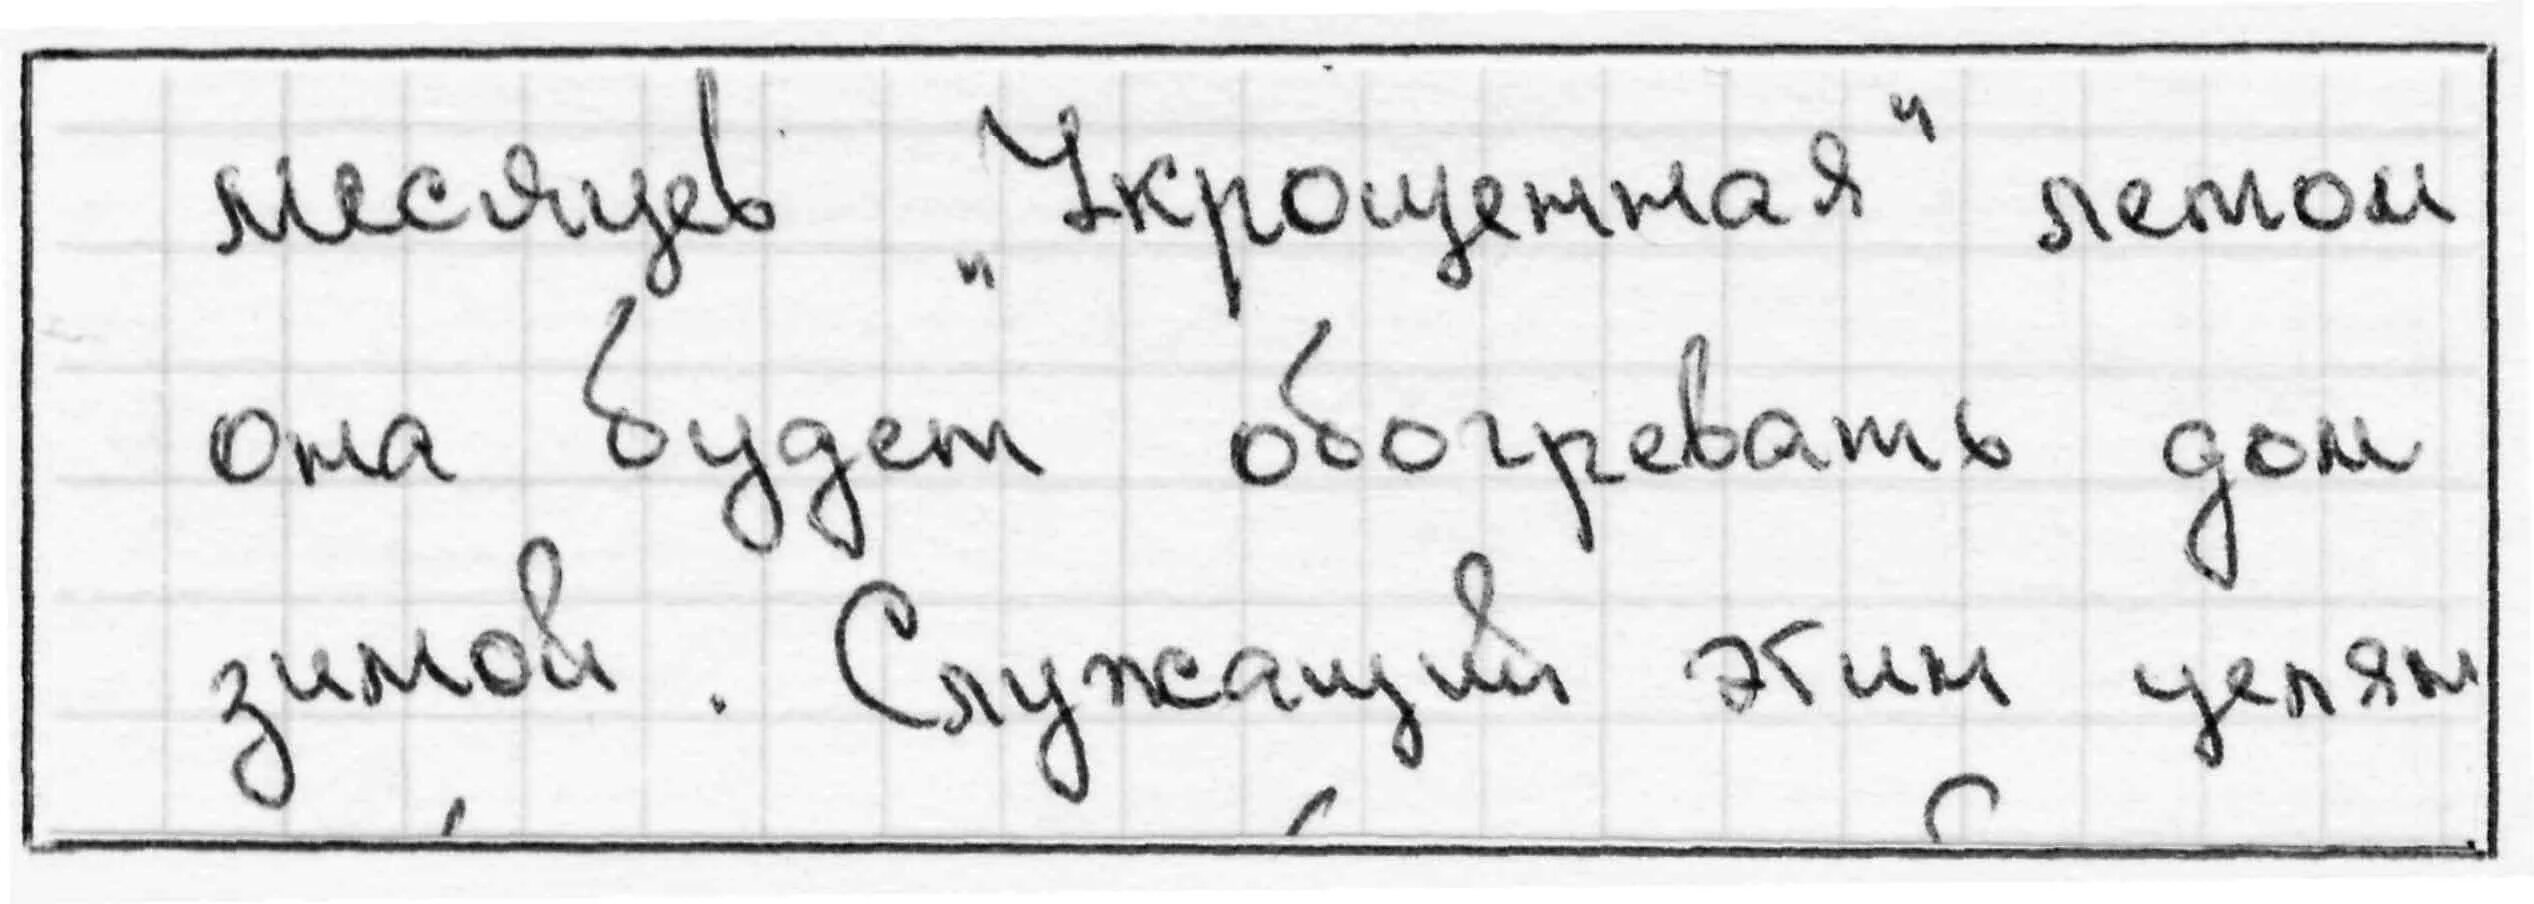 месяцев „Укрощенная“ летом
она будет обогревать дом
зимой. Служащий этим целям